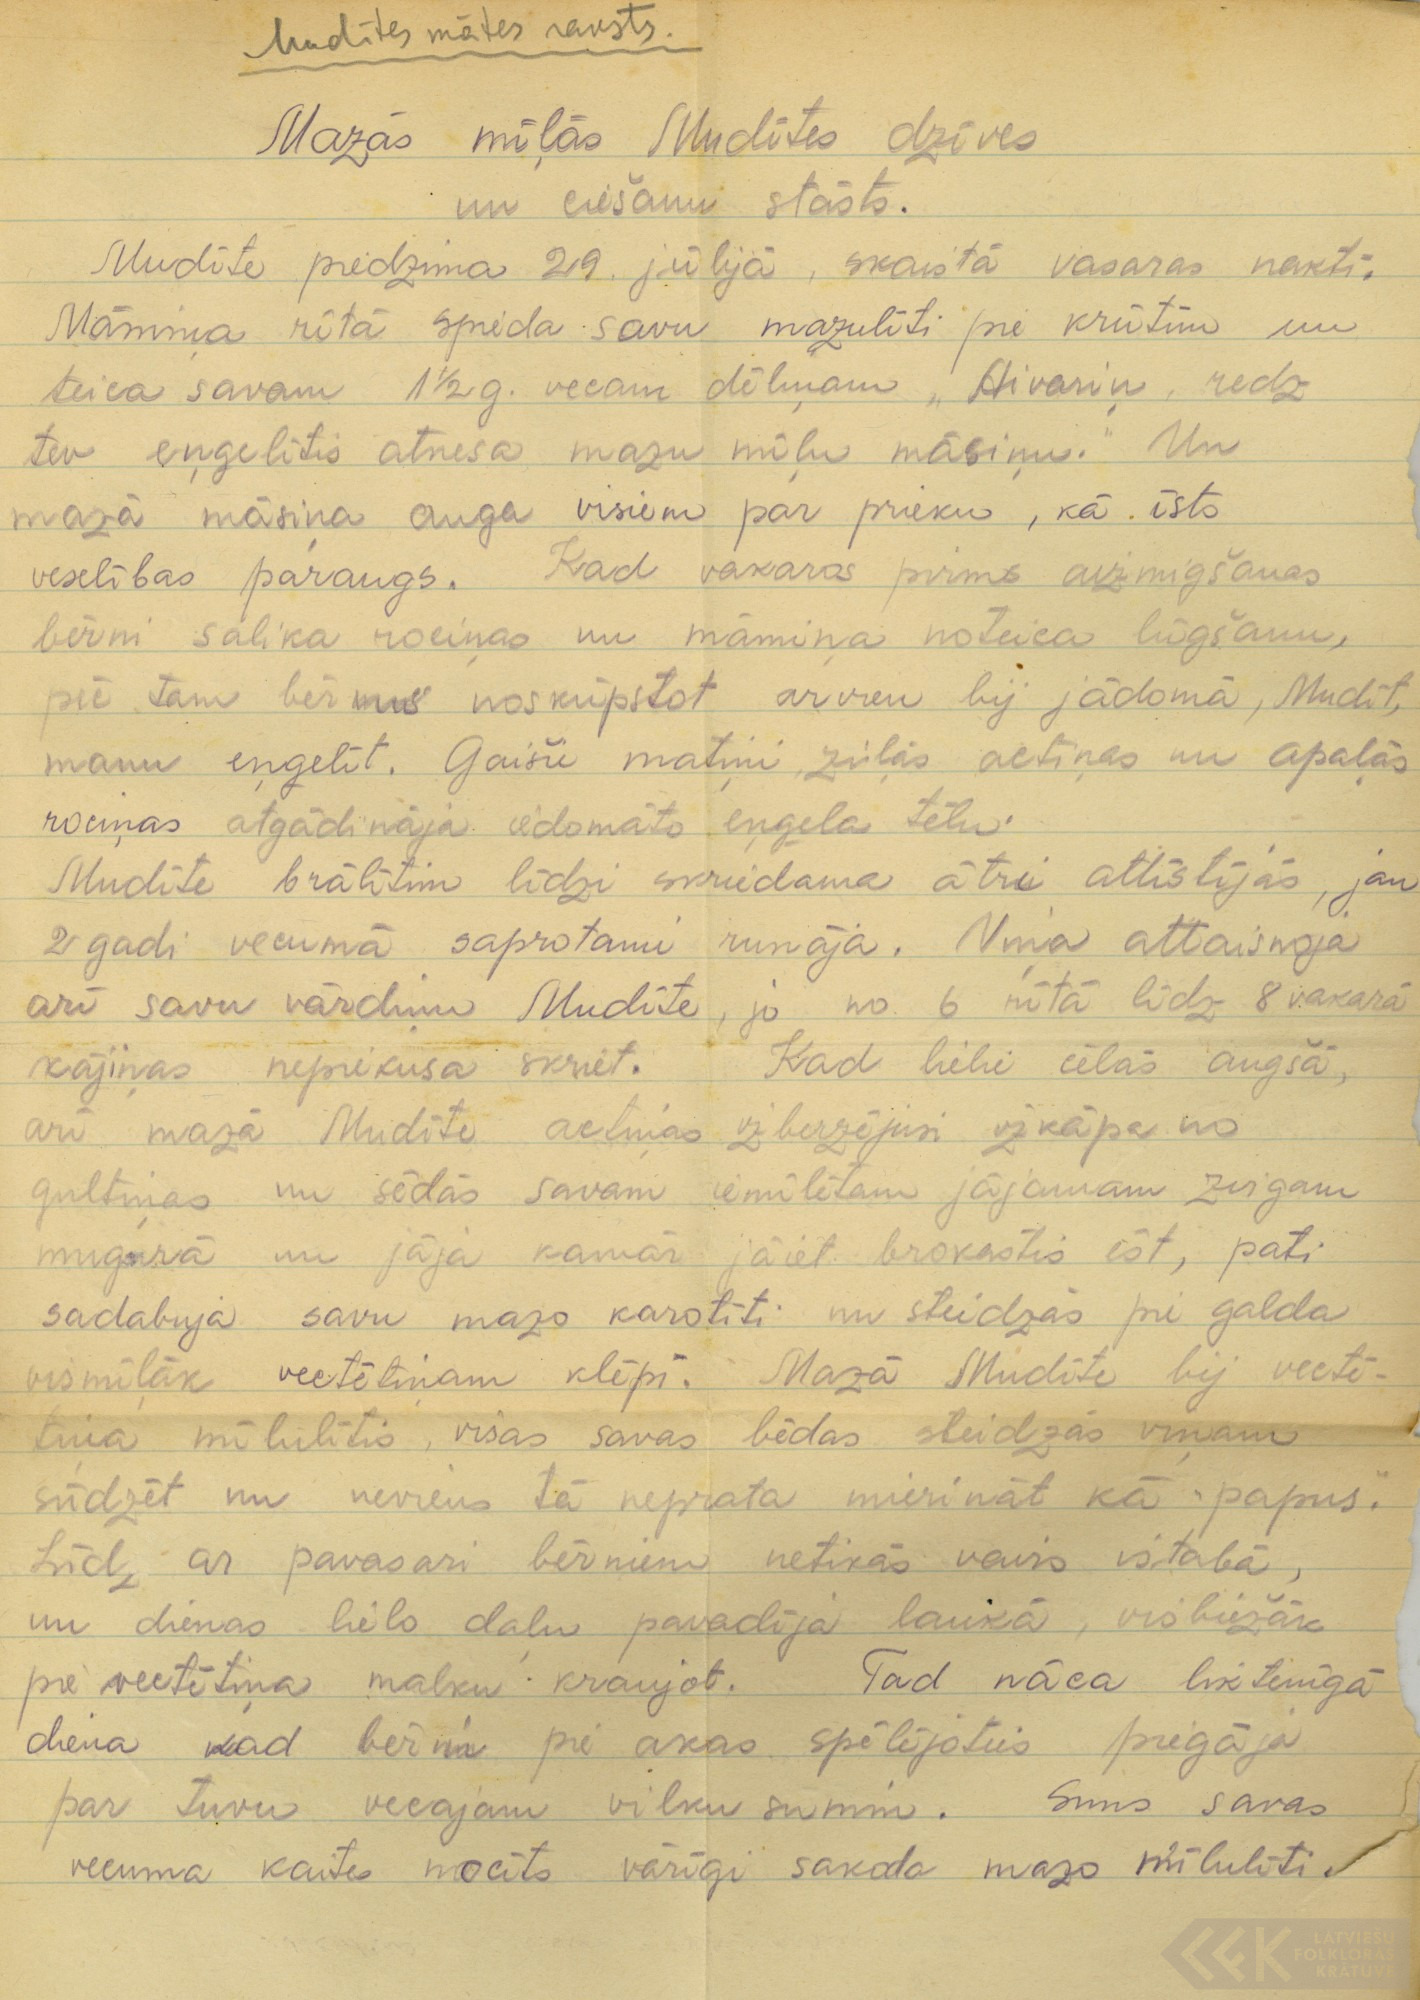 Mudītes mātes raksts.
Mazās mīļās Mudītes dzīves
un ciešanu stāsts.
Mudīte piedzima 29. jūlijā, skaistā vasaras naktī.
Māmiņa rītā spieda savu mazulīti pie krūtīm un
teica savam 1½ g. vecam dēliņam „Aivariņ, redz
tev eņģelītis atnesa mazu mīļu māsiņu." Un
mazā māsiņa auga visiem par prieku, kā īsts
veselības paraugs. Kad vakaros pirms aizmigšanas
bērni salika rociņas un māmiņa noteica lūgšanu,
pie tam bērnus noskūpstot arvien bij jādomā, Mudīt,
manu eņģelīt. Gaiši matiņi, zilās actiņas un apaļās
rociņas atgādināja iedomāto eņģeļa tēlu.
Mudīte brālītim līdzi skriedama ātri attīstījās, jau
2 gadi vecumā saprotami runāja. Viņa attaisnoja
arī savu vārdiņu Mudīte, jo no 6 rītā līdz 8 vakarā
kājiņas nepiekusa skriet. Kad lielie cēlās augšā,
arī mazā Mudīte actiņas izberzējusi izkāpa no
gultiņas un sēdās savam iemīļotam jājamam zirgam
mugurā un jāja kamēr jāiet brokastis ēst, pati
sadabuja savu mazo karotīti un steidzās pie galda
vismīļāk vectētiņam klēpī. Mazā Mudīte bij vectē-
tiņa mīlulītis, visas savas bēdas steidzās viņam
sūdzēt un neviens tā neprata mierināt kā „papus".
Līdz ar pavasari bērniem netikās vairs istabā,
un dienas lielo daļu pavadīja laukā, visbiežāk
pie vectētiņa malku kraujot. Tad nāca liktenīgā
diena kad bērni pie akas spēlējoties piegāja
par tuvu vecajam vilku sunim. Suns savas
vecuma kaites mocīts vārīgi sakoda mazo mīlulīti.
LATVIEŠU
FOLKLORAS
KRĀTUVE